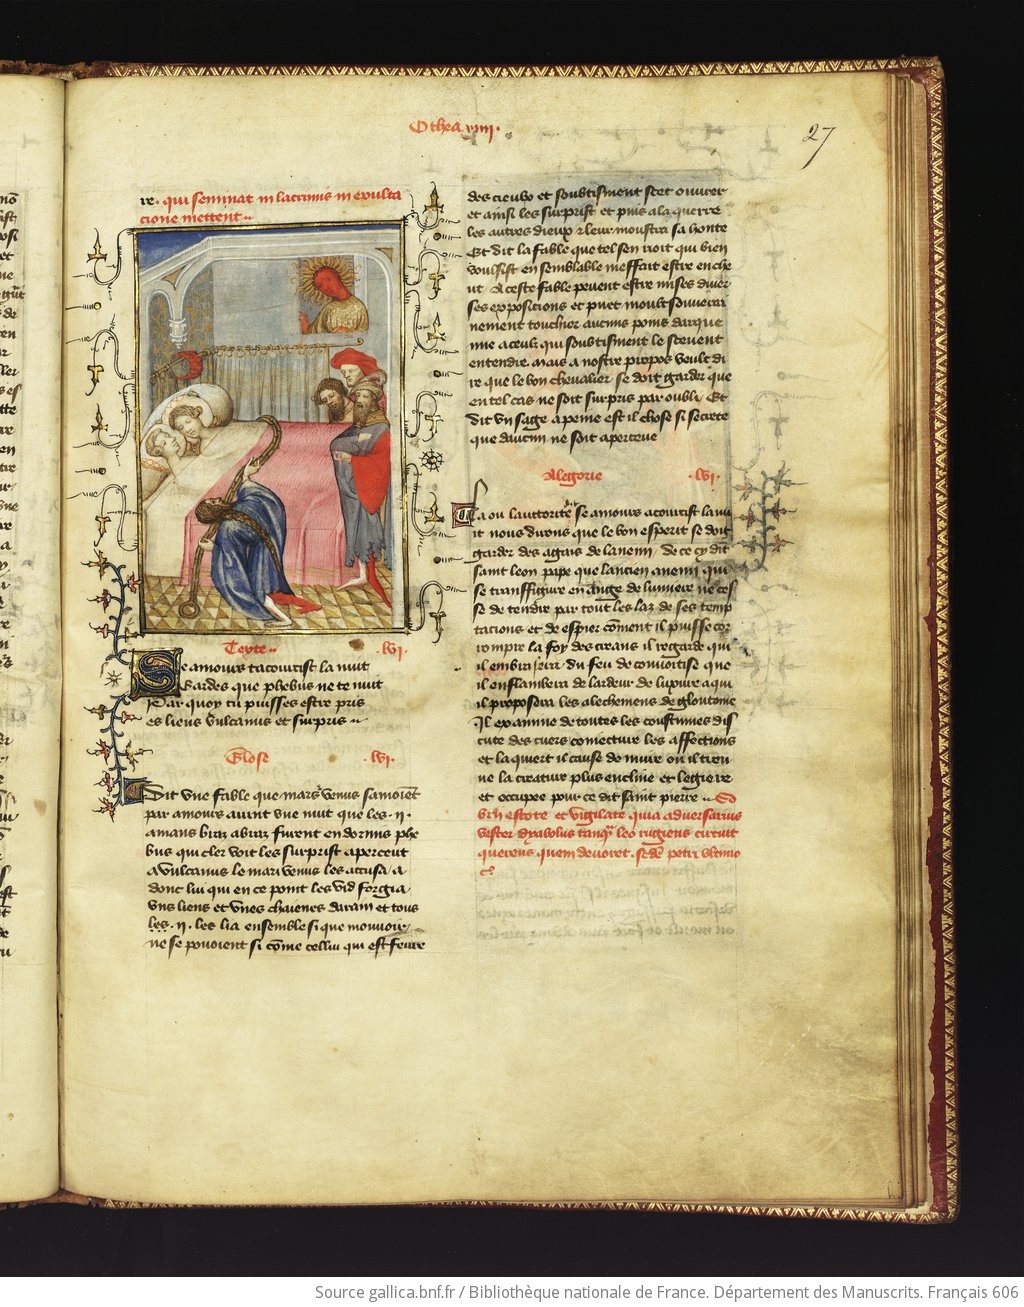 Othea
27
re. qui seminat in lacrimis in exulta
cione mettent
Texte .lvi.
Se amours tacourcist la nuit
Gardes que phebus ne te nuit
Par quoy tu puisses estre pris
es liens vulcanus et surpris
Glose .lvi.
Dit une fable que mars venus samoiet
par amours avint une nuit que les .ii.
amans braz a braz furent endormis phe
bus qui cler voit les surprist aperceut
a vulcanus le mari venus les accusa a
donc lui qui en ce point les vid forgia
uns liens et unes chaienes darain et tous
les .ii. les lia ensemble si que mouvoir
ne se povoient si cõme cellui qui est fevre
des cieulx et soubtilment scet ouvrer
et ainsi les surprist et puis ala querre
les autres dieux et leur moustra sa honte
Et dit la fable que tel sen rioit qui bien
voulsist en semblable meffait estre enche
ut A ceste fable pevent estre mises diver
ses expositions et puet moult souverai
nement touchier aucuns poins darque
mie a ceulx qui soubtilment le scevent
entendre. mais a nostre propos veult di
re que le bon chevalier se doit garder que
en tel cas ne soit surpris par oubli Et
dit un sage a peine est il chose si secrete
que daucun ne soit aperceue
Alegorie .lvi.
La ou lauttorité dit se amours acourcist la nu
it nous dirons que le bon esperit se doit
garder des agais de lanemi de ce cy dit
saint leon pape que lancien anemi qui
se transfigure en ange de lumiere ne ces
se de tendre par tout les laz de ses temp
tacions et de espier cõment il puisse cor
rompre la foy des creans il regarde qui
il embrasera du feu de convoitise que
il enflambera de lardeur de luxure a qui
il proposera les alechemens de gloutonie
Il examine de toutes les coustumes dis
cute des cuers coniecture les affections
et la quiert il cause de nuire ou il treu
ve la creature plus encline et legiere
et occupee pour ce dit saint pierre So
brii estote et vigilate quia adversarius
vester dyabolus tanqȝ leo rugiens circuit
querens quem devoret. secde petri ultimo
c°
Source gallica.bnf.fr / Bibliothèque nationale de France. Département des Manuscrits. Français 606